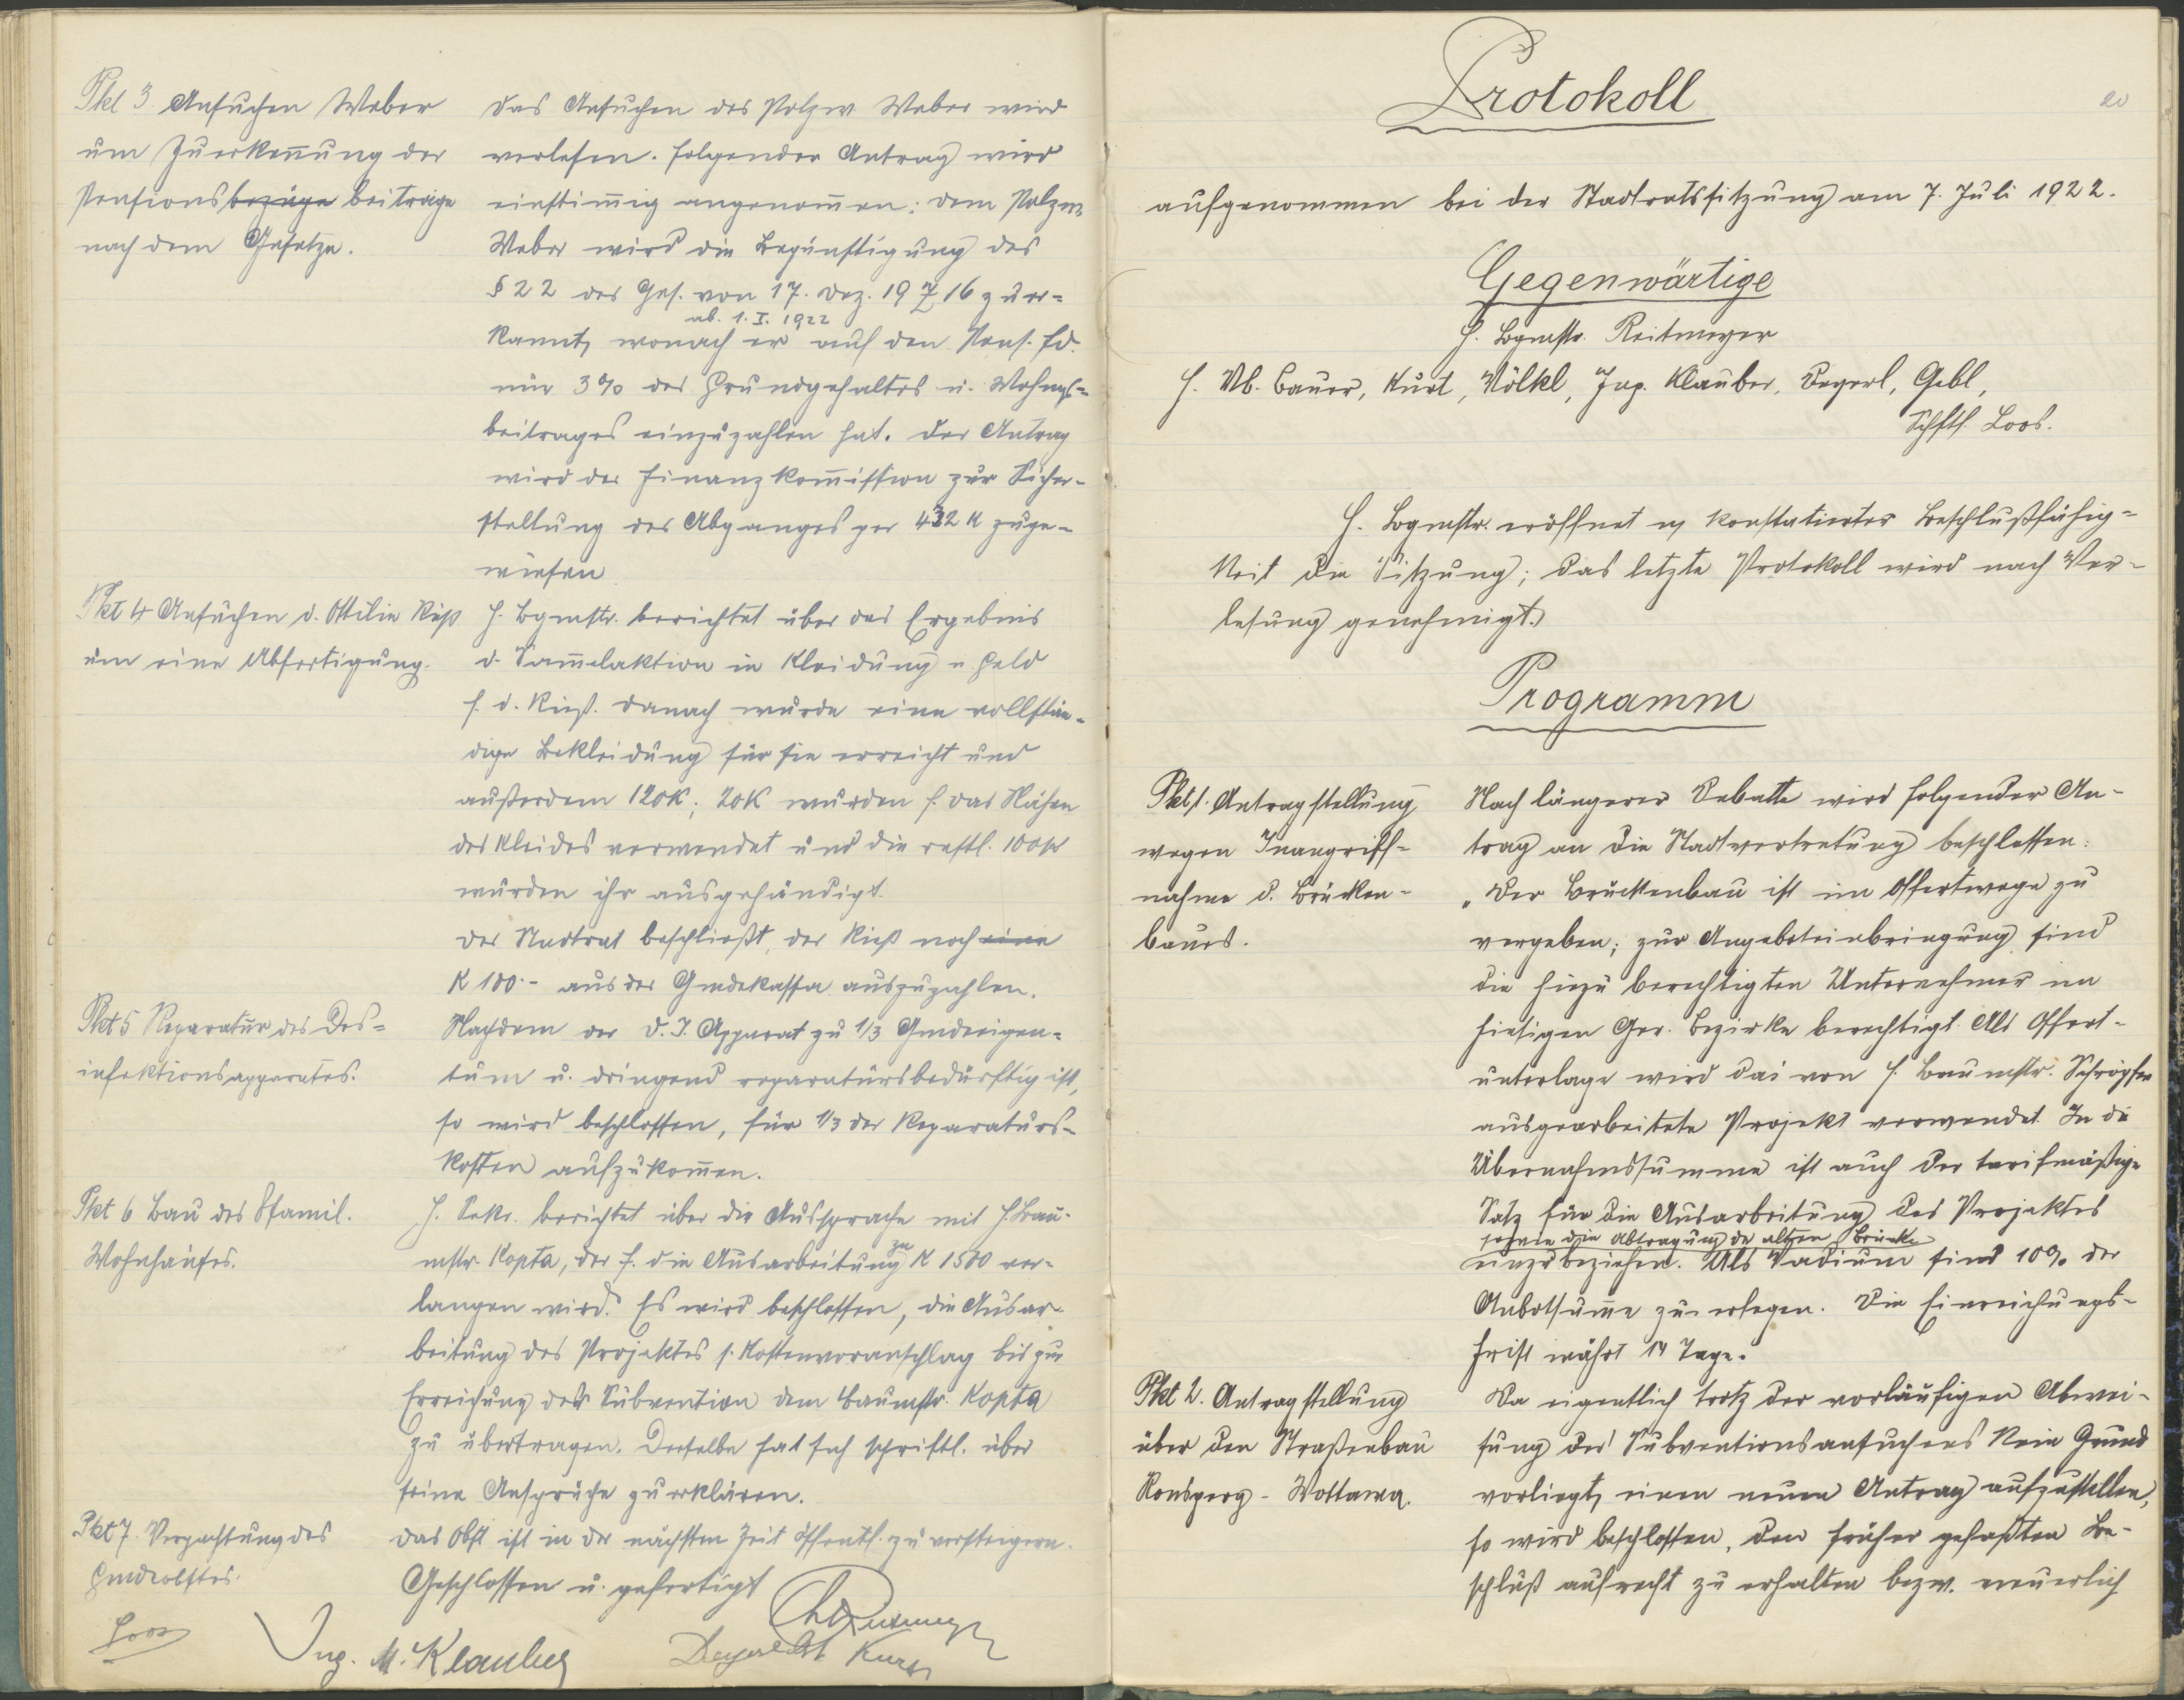 Pkt 3. Ansuchen Weber
um Zuerkennung der
Pensionsbezüge beiträge
nach dem Gesetze.
Das Ansuchen des Polzw. Weber wird
verlesen. Folgender Antrag wird
einstimmig angenommen: Dem Polzw.
Weber wird die Begünstigung des
§ 22 des Ges. von 17. Dez. 19 16 zuer-
ab. 1. I. 1922
kannt, wonach er auf den Pens. fd.
nur 3% des Grundgehaltes u. Wohngs-
beitrages einzuzahlen hat. Der Antrag
wird der Finanzkommission zur Sicher-
stellung des Abganges per 432 K zuge-
wiesen
Pkt 4 Ansuchen d. Ottilie Rieß
um eine Abfertigung.
H. Bgmstr. berichtet über das Ergebnis
d. Sammelaktion in Kleidung u Geld
f. d. Rieß. Danach wurde eine vollstän-
dige Bekleidung für sie erreicht und
außerdem 120K; 20K wurden f. das Nähen
des Kleides verwendet und die restl. 100 K
wurden ihr ausgehändigt.
Der Stadtrat beschließt, der Rieß noch eine
K 100·- aus der Gmdekassa auszuzahlen.
Pkt 5 Reparatur des Des-
infektionsapparates.
Nachdem der D. I. Apparat zu 1/3 Gmdeeigen-
tum u. dringend reparatursbedürftig ist,
so wird beschlossen, für 1/3 der Reparaturs-
kosten aufzukommen.
Pkt 6 Bau des 8famil.
Wohnhauses.
H. Sekr. berichtet über die Aussprache mit H. Bau-
mstr. Kopta, der f. die Ausarbeitung zu K 1500 ver-
langen wird. Es wird beschlossen, die Ausar-
beitung des Projektes s. Kostenvoranschlag bis zur
Erreichung der Subvention dem Baumstr. Kopta
zu übertragen. Derselbe hat sich schriftl. über
seine Ansprüche zu erklären.
Pkt 7. Verpachtung des
Gmdeobstes.
Das Obst ist in der nächsten Zeit öffentl. zu versteigern.
Geschlossen u. gefertigt
Loos
Ing. M. Klauber
Kurt
Protokoll
20
aufgenommen bei der Stadtratssitzung am 7. Juli 1922.
Gegenwärtige
H. Bgmstr. Reitmeyer
H. Vb. Bauer, Kurt, Völkl, Ing. Klauber, Degerl, Gebl,
Schftf. Loos.
H. Bgmstr. eröffnet n konstatierter Beschlußfähig-
keit die Sitzung; das letzte Protokoll wird nach Ver-
lesung genehmigt.
Programm
Pkt 1. Antragstellung
wegen Inangriff-
nahme d. Brücken-
baues.
Nach längerer Debatte wird folgender An-
trag an die Stadtvertretung beschlossen:
„Der Brückenbau ist im Offertwege zu
vergeben; zur Angeboteinbringung sind
die hiezu berechtigten Unternehmer im
hiesigen Ger. Bezirke berechtigt. Als Offert-
unterlage wird das von H. Baumstr. Schröpfer
ausgearbeitete Projekt verwendet. In die
Übernahmssumme ist auch der tarifmäßige
Satz für die Ausarbeitung des Projektes
sowie die Abtragung der alten Brücke
einzubeziehen. Als Vadium sind 10% der
Anbotsumme zu erlegen. Die Einreichungs-
frist währt 14 Tage.
Pkt 2. Antragstellung
über den Straßenbau
Ronsperg - Wottawa.
Da eigentlich trotz der vorläufigen Abwei-
sung des Subventionsansuchens kein Grund
vorliegt, einen neuen Antrag aufzustellen,
so wird beschlossen, den früher gefaßten Be-
schluß aufrecht zu erhalten bezw. neuerlich